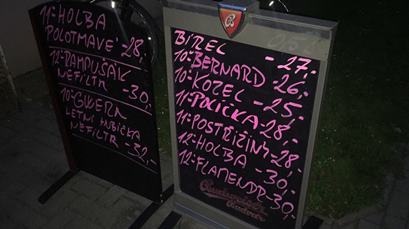 11° HOLBA
POLOTMAVÉ 28,-
12° RAMPUŠÁK
NEFILTR - 30,-
10°
LETNÍ HUBIČKA
NEFILTR - 32,-
BIREL - 27,-
10° BERNARD - 26,-
10° KOZEL - 25,-
11° POLIČKA - 28,-
11° POSTŘIŽIN - 28,-
12° HOLBA - 30,-
12° FLAMENDR - 30,-
Budweiser
Budvar